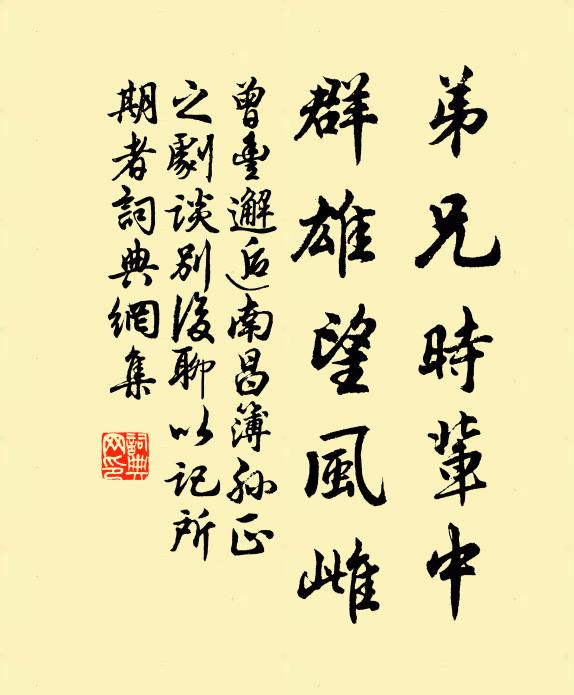 弟兄時輩中
群雄望風雌
曾豐邂逅南昌簿孙正
之劇談別後聊以记所
期者詞典網集
詞典网印